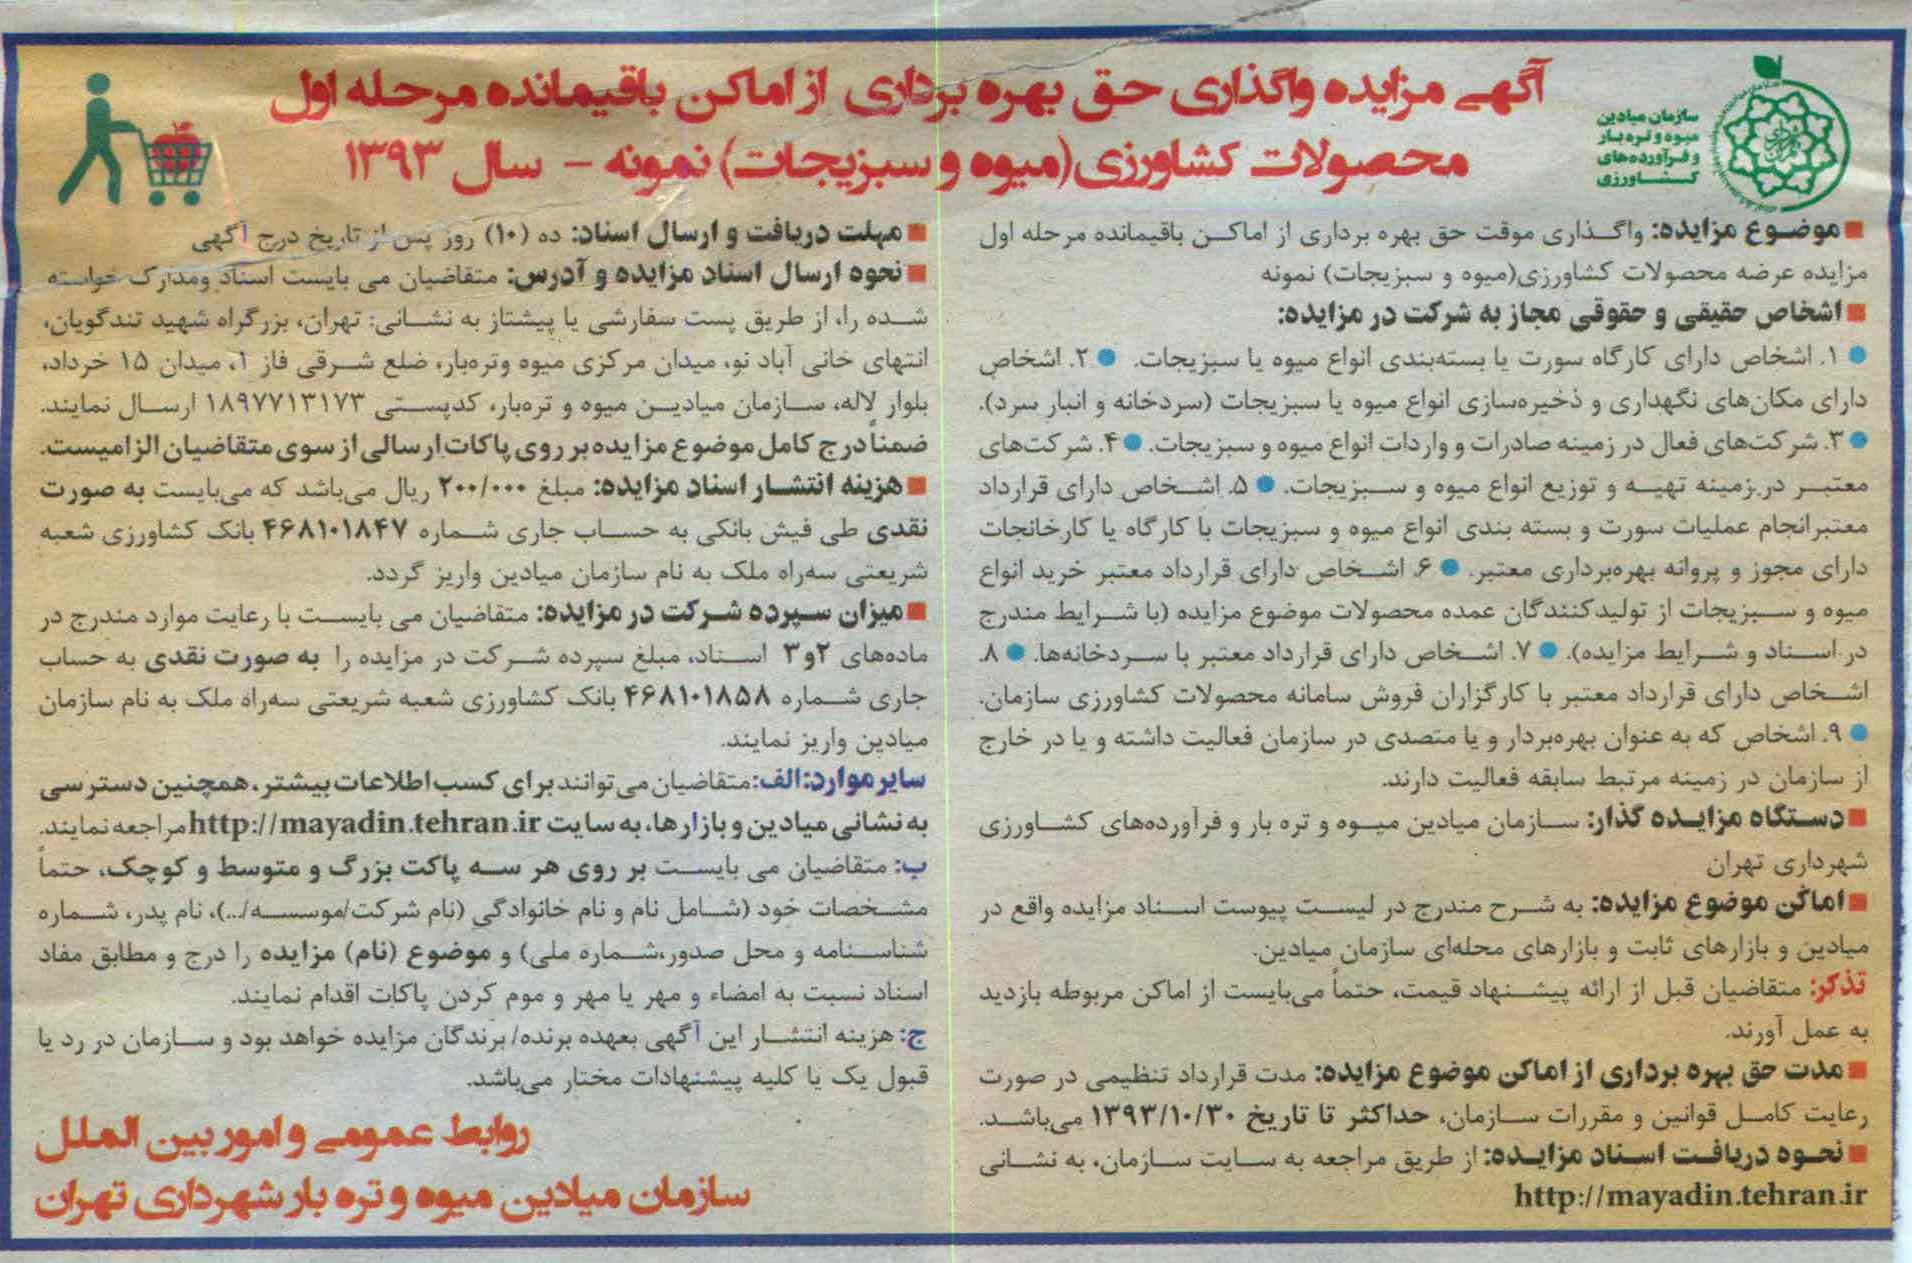 آگهی مزایده واگذاری حق بهره برداری از اماکن باقیمانده مرحله اول
محصولات کشاورزی(میوه و سبزیجات) نمونه – سال ۱۳۹۳
سازمان میادین
میوه و تره بار
و فرآورده‌های
کشاورزی
■ موضوع مزایده: واگذاری موقت حق بهره برداری از اماکن باقیمانده مرحله اول
مزایده عرضه محصولات کشاورزی(میوه و سبزیجات) نمونه
■ اشخاص حقیقی و حقوقی مجاز به شرکت در مزایده:
● ۱. اشخاص دارای کارگاه سورت یا بسته‌بندی انواع میوه یا سبزیجات. ● ۲. اشخاص
دارای مکان‌های نگهداری و ذخیره‌سازی انواع میوه یا سبزیجات (سردخانه و انبار سرد).
● ۳. شرکت‌های فعال در زمینه صادرات و واردات انواع میوه و سبزیجات. ● ۴. شرکت‌های
معتبر در زمینه تهیه و توزیع انواع میوه و سبزیجات. ● ۵. اشخاص دارای قرارداد
معتبر انجام عملیات سورت و بسته بندی انواع میوه و سبزیجات با کارگاه یا کارخانجات
دارای مجوز و پروانه بهره‌برداری معتبر. ● ۶. اشخاص دارای قرارداد معتبر خرید انواع
میوه و سبزیجات از تولیدکنندگان عمده محصولات موضوع مزایده (با شرایط مندرج
در اسناد و شرایط مزایده). ● ۷. اشخاص دارای قرارداد معتبر با سردخانه‌ها. ● ۸.
اشخاص دارای قرارداد معتبر با کارگزاران فروش سامانه محصولات کشاورزی سازمان.
● ۹. اشخاص که به عنوان بهره‌بردار و یا متصدی در سازمان فعالیت داشته و یا در خارج
از سازمان در زمینه مرتبط سابقه فعالیت دارند.
■ دستگاه مزایده گذار: سازمان میادین میوه و تره بار و فرآورده‌های کشاورزی
شهرداری تهران
■ اماکن موضوع مزایده: به شرح مندرج در لیست پیوست اسناد مزایده واقع در
میادین و بازارهای ثابت و بازارهای محله‌ای سازمان میادین.
تذکر: متقاضیان قبل از ارائه پیشنهاد قیمت، حتماً می‌بایست از اماکن مربوطه بازدید
به عمل آورند.
■ مدت حق بهره برداری از اماکن موضوع مزایده: مدت قرارداد تنظیمی در صورت
رعایت کامل قوانین و مقررات سازمان، حداکثر تا تاریخ ۱۳۹۳/۱۰/۳۰ می‌باشد.
■ نحوه دریافت اسناد مزایده: از طریق مراجعه به سایت سازمان، به نشانی
http://mayadin.tehran.ir
■ مهلت دریافت و ارسال اسناد: ده (۱۰) روز پس از تاریخ درج آگهی
■ نحوه ارسال اسناد مزایده و آدرس: متقاضیان می بایست اسناد ومدارک خواسته
شده را، از طریق پست سفارشی یا پیشتاز به نشانی: تهران، بزرگراه شهید تندگویان،
انتهای خانی آباد نو، میدان مرکزی میوه وتره‌بار، ضلع شرقی فاز ۱، میدان ۱۵ خرداد،
بلوار لاله، سازمان میادین میوه و تره‌بار، کدپستی ۱۸۹۷۷۱۳۱۷۳ ارسال نمایند.
ضمناً درج کامل موضوع مزایده بر روی پاکات ارسالی از سوی متقاضیان الزامیست.
■ هزینه انتشار اسناد مزایده: مبلغ ۲۰۰/۰۰۰ ریال می‌باشد که می‌بایست به صورت
نقدی طی فیش بانکی به حساب جاری شماره ۴۶۸۱۰۱۸۴۷ بانک کشاورزی شعبه
شریعتی سه‌راه ملک به نام سازمان میادین واریز گردد.
■ میزان سپرده شرکت در مزایده: متقاضیان می بایست با رعایت موارد مندرج در
ماده‌های ۲و۳ اسناد، مبلغ سپرده شرکت در مزایده را به صورت نقدی به حساب
جاری شماره ۴۶۸۱۰۱۸۵۸ بانک کشاورزی شعبه شریعتی سه‌راه ملک به نام سازمان
میادین واریز نمایند.
سایر موارد: الف: متقاضیان می‌توانند برای کسب اطلاعات بیشتر، همچنین دسترسی
به نشانی میادین و بازارها، به سایت http://mayadin.tehran.ir مراجعه نمایند.
ب: متقاضیان می بایست بر روی هر سه پاکت بزرگ و متوسط و کوچک، حتماً
مشخصات خود (شامل نام و نام خانوادگی (نام شرکت/موسسه/...)، نام پدر، شماره
شناسنامه و محل صدور،شماره ملی) و موضوع (نام) مزایده را درج و مطابق مفاد
اسناد نسبت به امضاء و مهر یا مهر و موم کردن پاکات اقدام نمایند.
ج: هزینه انتشار این آگهی بعهده برنده/ برندگان مزایده خواهد بود و سازمان در رد یا
قبول یک یا کلیه پیشنهادات مختار می‌باشد.
روابط عمومی و امور بین الملل
سازمان میادین میوه و تره بار شهرداری تهران